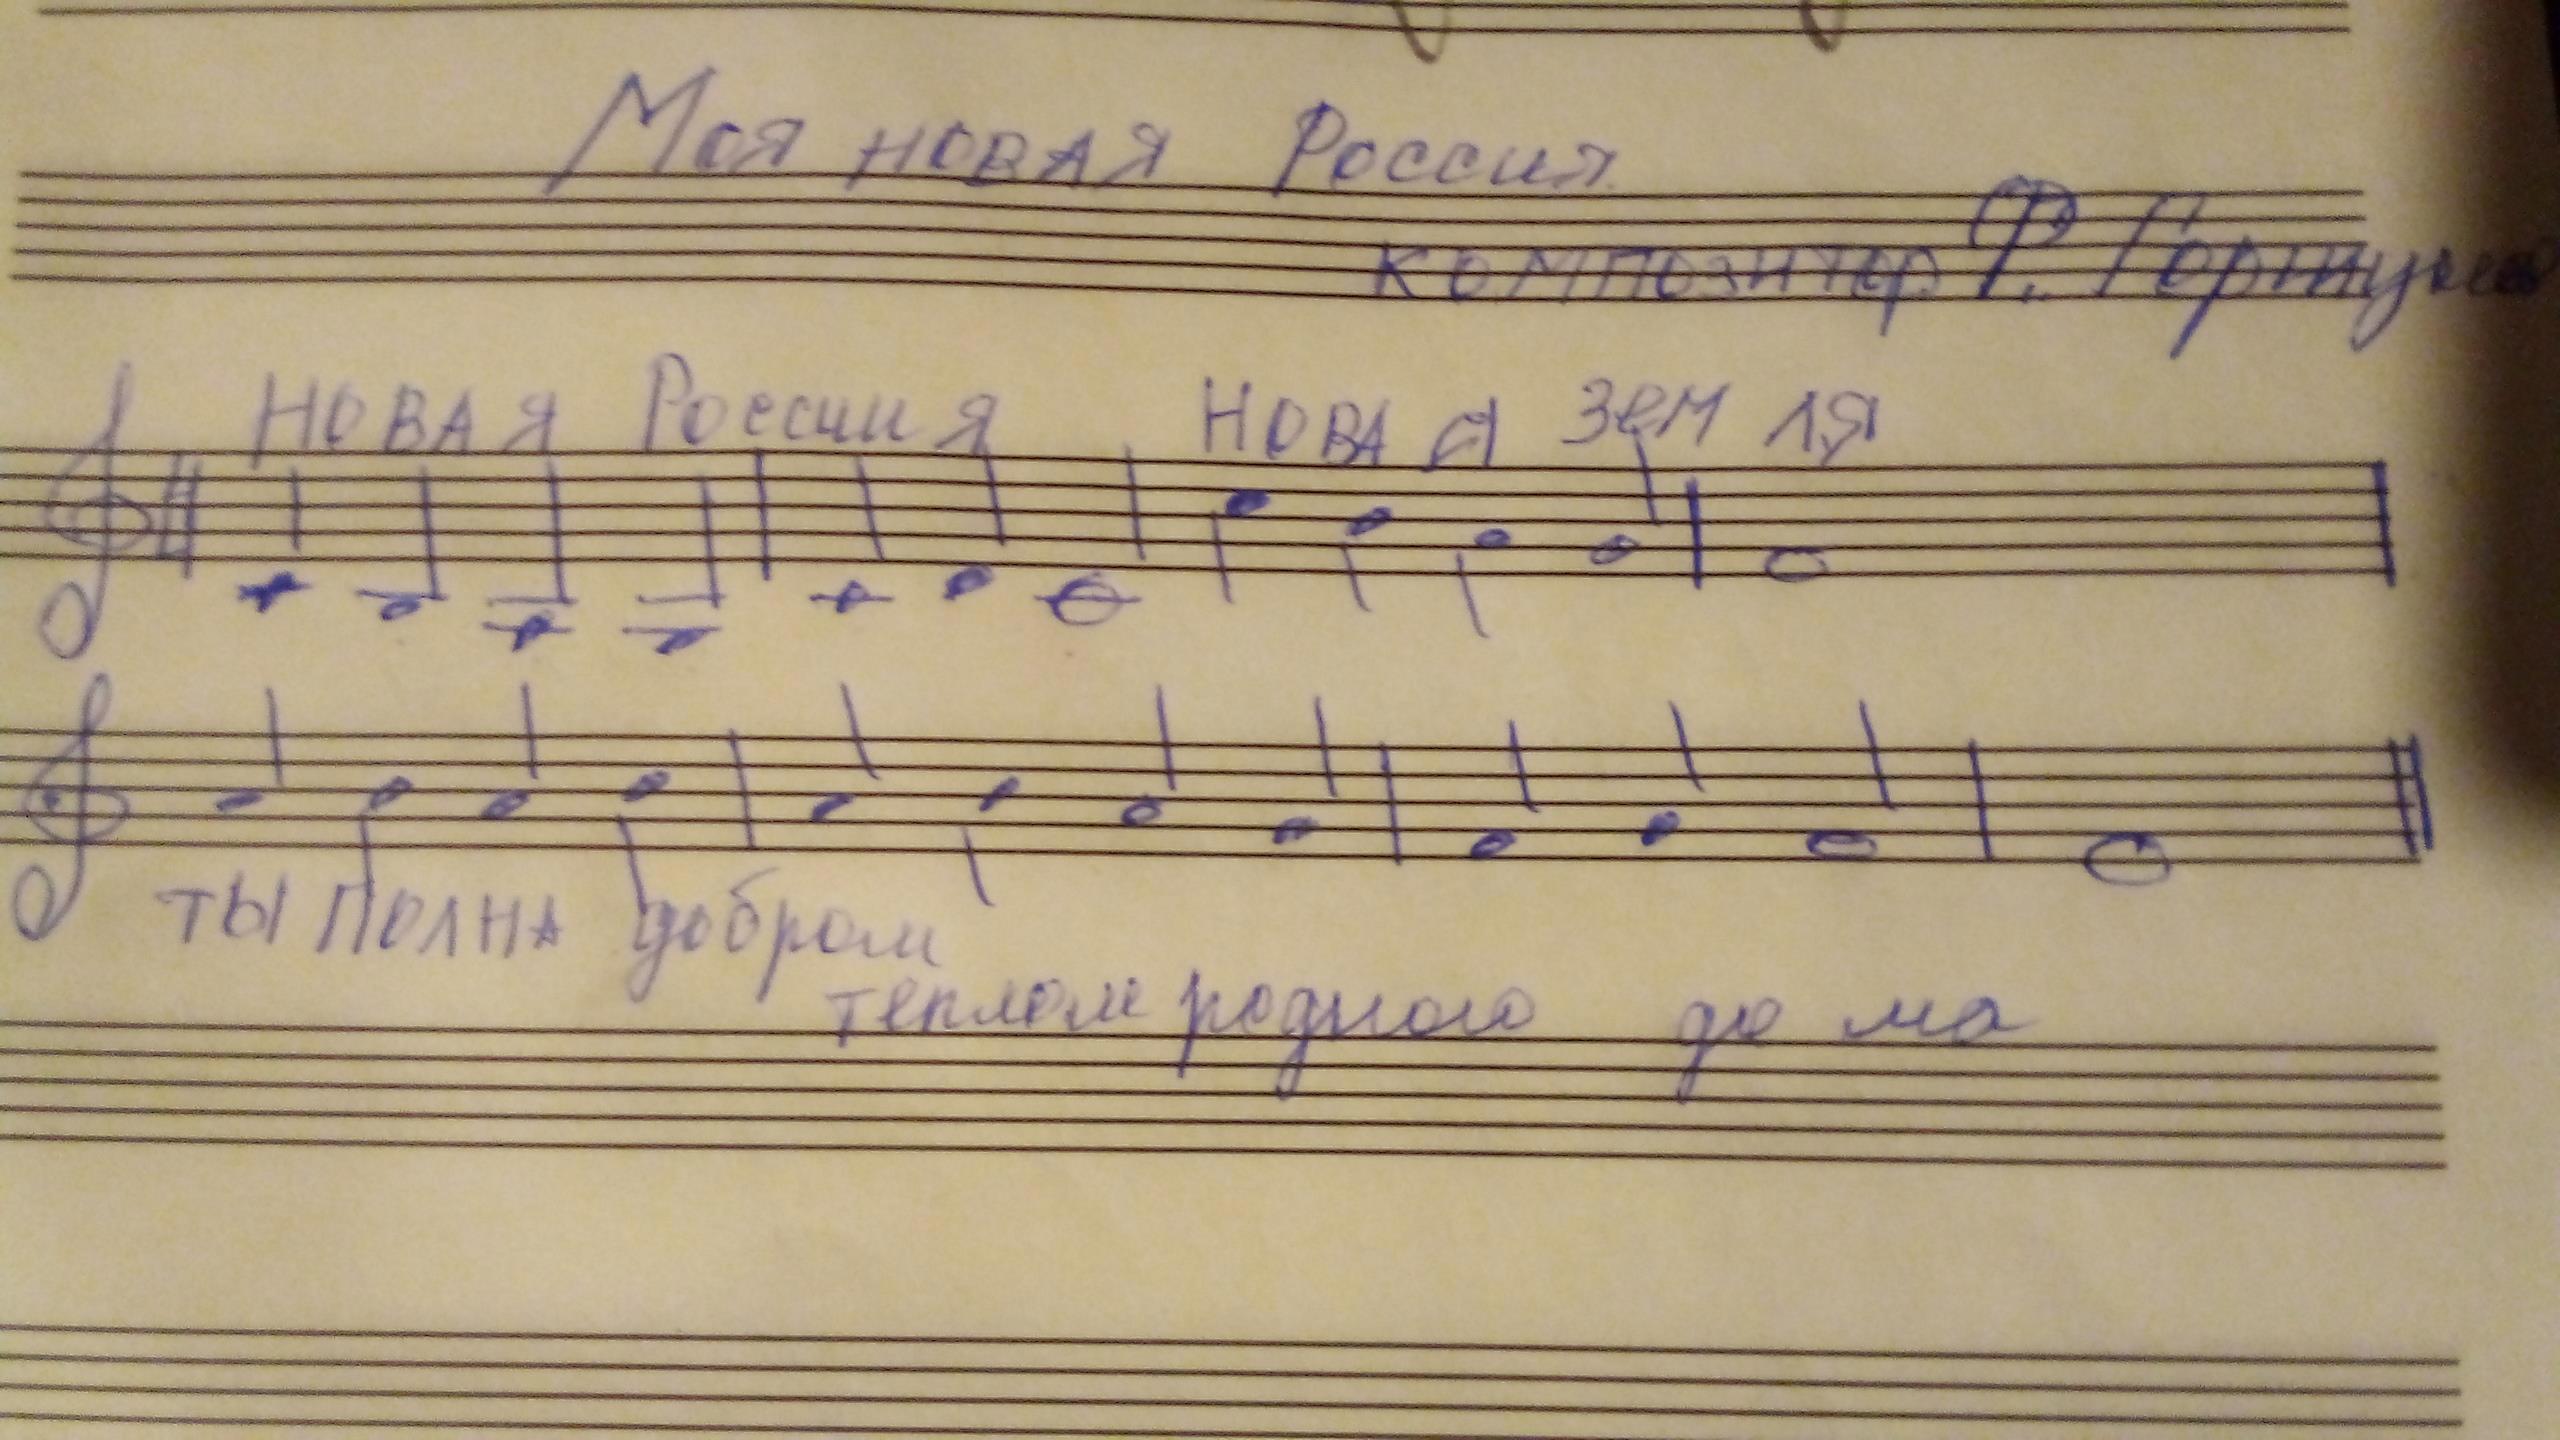 Моя новая Россия
композитор Ф.
Новая Россия Новая земля
ты полна добром
теплом родного до ма